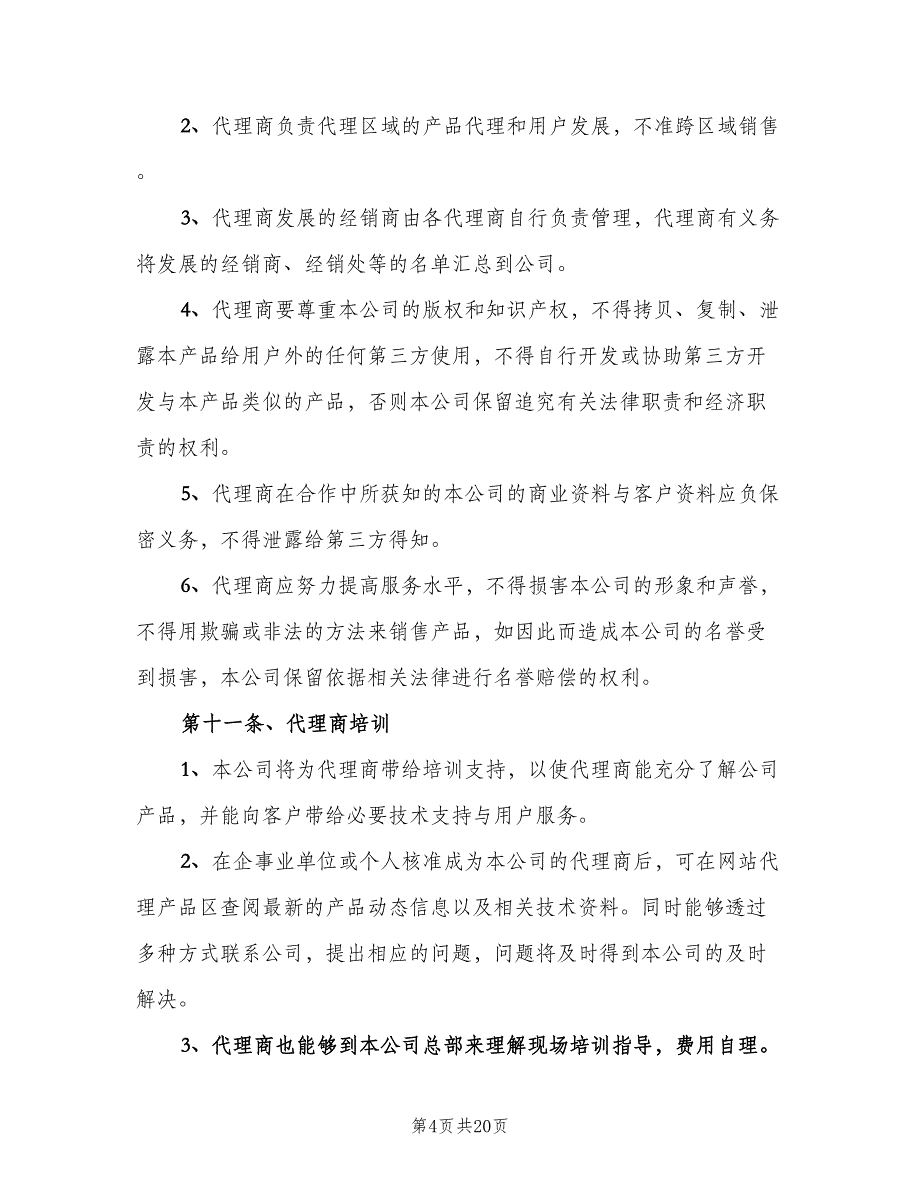 2、代理商负责代理区域的产品代理和用户发展，不准跨区域销售
。
3、代理商发展的经销商由各代理商自行负责管理，代理商有义务
将发展的经销商、经销处等的名单汇总到公司。
4、代理商要尊重本公司的版权和知识产权，不得拷贝、复制、泄
露本产品给用户外的任何第三方使用，不得自行开发或协助第三方开
发与本产品类似的产品，否则本公司保留追究有关法律职责和经济职
责的权利。
5、代理商在合作中所获知的本公司的商业资料与客户资料应负保
密义务，不得泄露给第三方得知。
6、代理商应努力提高服务水平，不得损害本公司的形象和声誉，
不得用欺骗或非法的方法来销售产品，如因此而造成本公司的名誉受
到损害，本公司保留依据相关法律进行名誉赔偿的权利。
第十一条、代理商培训
1、本公司将为代理商带给培训支持，以使代理商能充分了解公司
产品，并能向客户带给必要技术支持与用户服务。
2、在企事业单位或个人核准成为本公司的代理商后，可在网站代
理产品区查阅最新的产品动态信息以及相关技术资料。同时能够透过
多种方式联系公司，提出相应的问题，问题将及时得到本公司的及时
解决。
3、代理商也能够到本公司总部来理解现场培训指导，费用自理。
第4页共20页